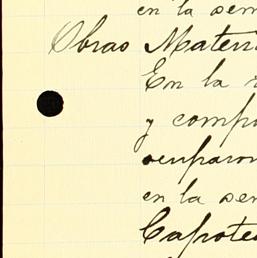 en la sem
Obras Materi
En la
y compu
ocuparon
en la sem
Capote